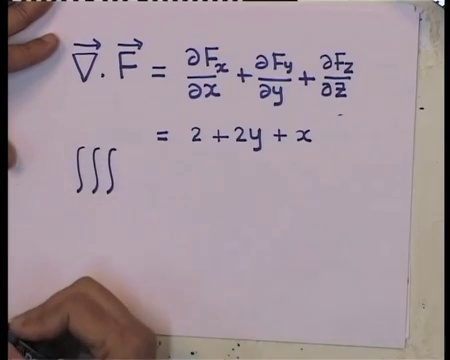 ∇⃗ . F⃗ = ∂Fx/∂x + ∂Fy/∂y + ∂Fz/∂z
= 2 + 2y + x
∫∫∫